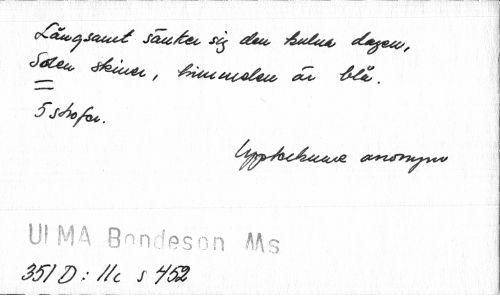 Långsamt sänker sig den kulna dagen,
Solen skiner, himmelen är blå.
5 strofer.
anonym
ULMA Bondeson Ms
351 D: 11c s 452